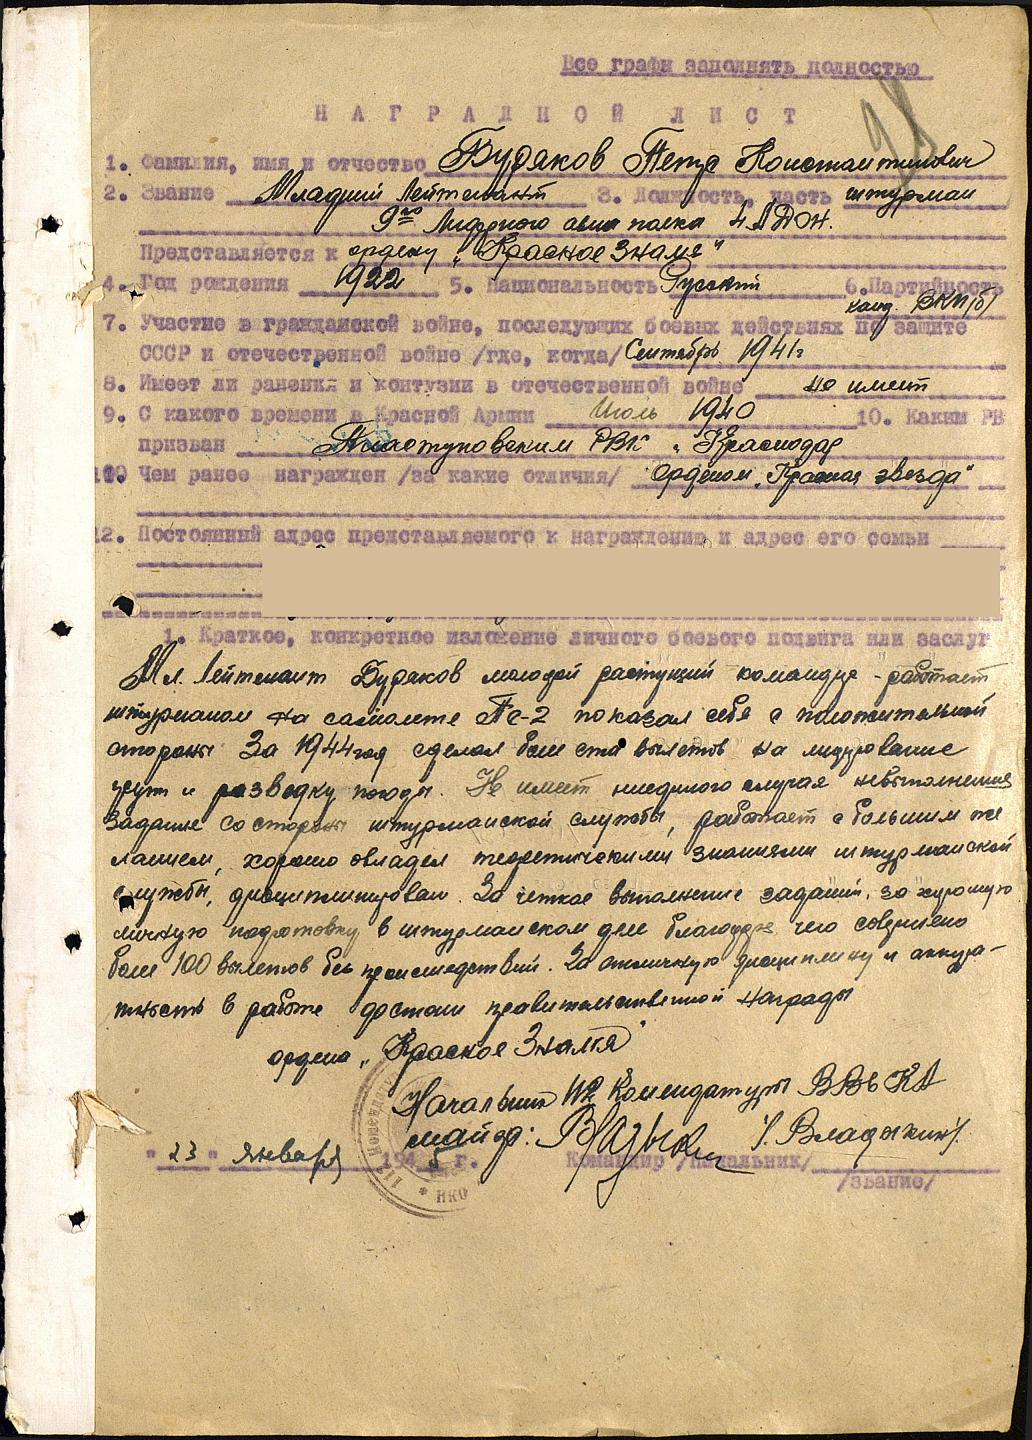 Все графы заполнять полностью
НАГРАДНОЙ ЛИСТ
1. Фамилия, имя и отчество Будяков Петр Константинович
2. Звание Младший Лейтенант 3. Должность, часть штурман
9го Лидерного авиа полка 4 АДОН.
Представляется к ордену „Красное Знамя"
4. Год рождения 1922 5. Национальность Русский 6. Партийность
канд. ВКП/б/
7. Участие в гражданской войне, последующих боевых действиях по защите
СССР и отечественной войне /где, когда/ Сентябрь 1941г
8. Имеет ли ранения и контузии в отечественной войне не имеет
9. С какого времени в Красной Армии Июль 1940 10. Каким РВ
призван Пластуновским РВК г Краснодар
Чем ранее награжден /за какие отличия/ Орденом „Красная звезда"
12. Постоянный адрес представляемого к награждению и адрес его семьи
1. Краткое, конкретное изложение личного боевого подвига или заслуг
Мл. Лейтенант Будяков молодой растущий командир - работает
штурманом на самолете Пе-2 показал себя с положительной
стороны За 1944 год сделал боле ста вылетов на лидирование
групп и разведку погоды. Не имеет ниединого случая невыполнения
задание со стороны штурманской службы, работает с большим же
ланием, хорошо овладел теоретическими знаниями штурманской
службы, дисциплинирован. За четкое выполнение заданий, за хорошую
личную подготовку в штурманском деле благодаря чего совершено
боле 100 вылетов без происшедствий. За отличную дисциплину и аккура-
тность в работе достоин правительственной награды
ордена „Красное Знамя"
Начальник Комендатуры ВВС КА
майор: /. Владыкин/.
"23" января 1945 г. Командир /Начальник/
/звание/
НКО